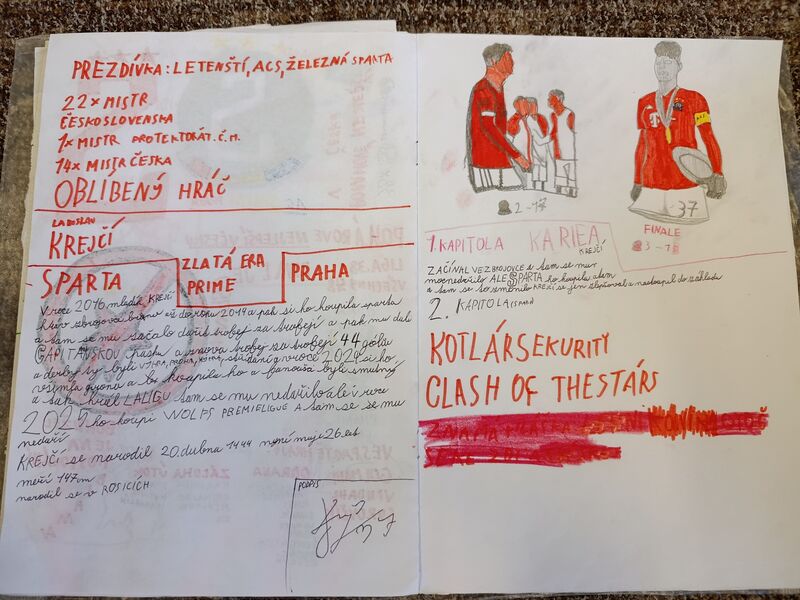 PREZDÍVKA: LETENŠTÍ, ACS, ŽELEZNÁ SPARTA
22x MISTR
ČESKOSLOVENSKA
1x MISTR PROTEKTORÁT.Č.M.
14x MISTR ČESKA
OBLÍBENÝ HRÁČ
LADISLAV
KREJČÍ
SPARTA
ZLATÁ ERA
PRIME
PRAHA
V roce 2016 mladík KREJČÍ
hrál zbrojovca brano až do roku 2019 a pak si ho koupila sparta
a tam se mu začalo dařit trofej za trofejí a pak mu dali
GAPITÁVSKOU pásku a znova trofej za trofejí 44 gólů
a derby ty byli a v roce 2024 si ho
girona a to koupila ho a fanoušci byli smutný
a tak hrál LALIGU tam se mu nedařilo ale v roce
2025 ho koupí WOLFS PREMIELIGUE A tam se se mu
nedaří
KREJČÍ se narodil 20. dubna 1444 není muje 26 let
meří 147m
narodil se v ROSICÍCH
PODPIS
2-1
37
FINALE
3-1
1. KAPITOLA KARIEA
KREJČÍ
ZAČÍNAL VE ZBROJOVCE a tam se mu
moc nedařilo ALE SPARTA ho koupila
a tam se to změnilo KREJČÍ se jen zlepšoval a nastoupil do základu
2. KAPITOLA (SPARTA)
KOTLÁRSEKURITY
CLASH OF THESTÁRS